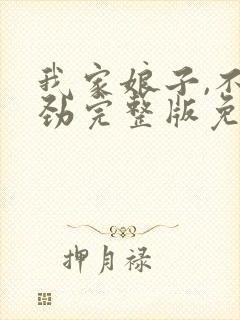 我家娘子,不
劲完整版免
押月禄